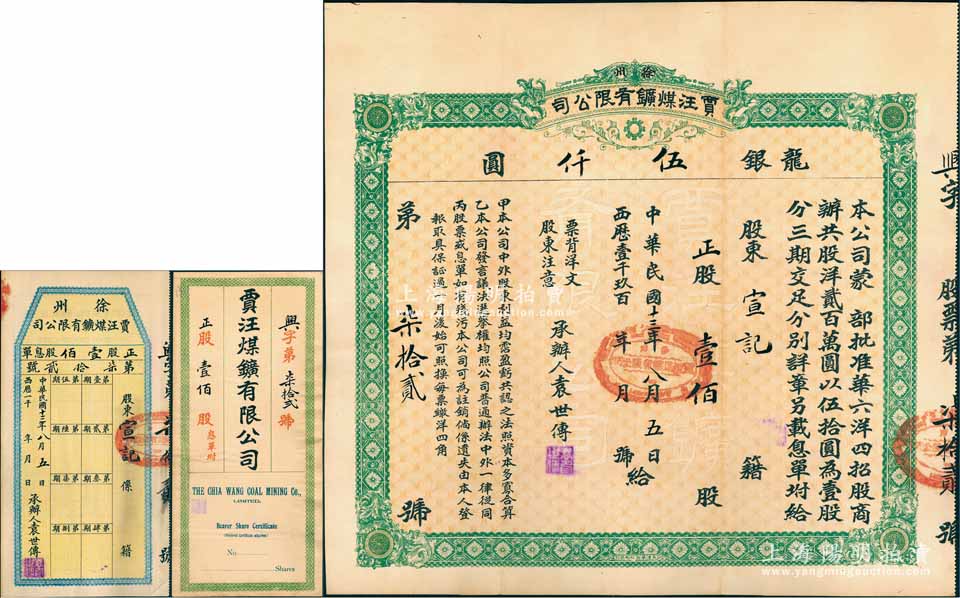 徐州
賈汪煤鑛有限公司
龍銀伍仟圓
本公司蒙 部批准華六洋四招股商
辦共股洋貳百萬圓以伍拾圓為壹股
分三期交足分別詳單另載息單坿給
股東 宣記 籍
正股 壹佰 股
中華民國十三年八月五日給
西歷壹千玖百 年 月 號
承辦人袁世傳
票背洋文
股東注意
甲本公司中外股東利益均霑盈虧共認之法照資本多寡合算
乙本公司發言議決選舉權均照公司普通辦法中外一律從同
丙股票或息單如有損污本公司可為註銷倘係遺失由本人登
報取具保証過 月後始可照換每票繳洋四角
第 柒拾貳 號
興字 股票第 柒拾貳 號
興字第 柒拾弍 號
賈汪煤鑛有限公司
正股 壹佰 股 息單坿
THE CHIA WANG COAL MINING Co.,
LIMITED.
Bearer Share Certificate
No.
Shares
徐州
賈汪煤鑛有限公司
正股壹佰股息單
第柒拾貳號
第壹期
第伍期
第貳期
第陸期
第叁期
第柒期
第肆期
第捌期
股東 宣記 係 籍
中華民國十三年八月五日
西歷一千 年 月 日
承辦人袁世傳
上海陽明拍賣
www.yangmingauction.com